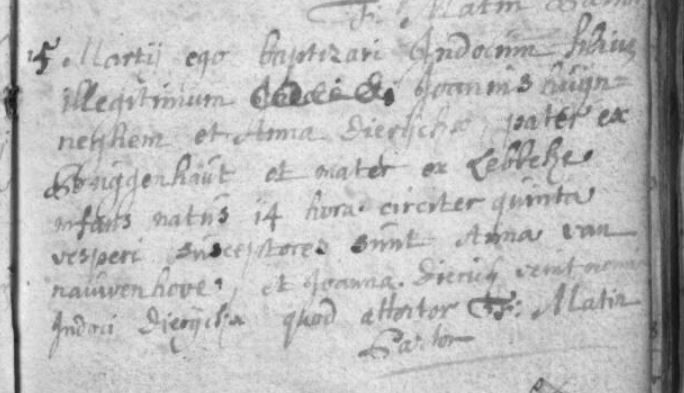 F: Matin
15 Martij ego baptizavi Judocum filium
illegitimum Joannis huijn=
neghem et Anna Dierijckx pater ex
Bruggenhaut et mater ex Lebbeke
infans natus 14 hora circiter quinta
vesperi susceptores sunt Anna van
nauwenhove, et Joanna Diericx
Judoci Dierijckx quod attestor F: Matin
Pastor